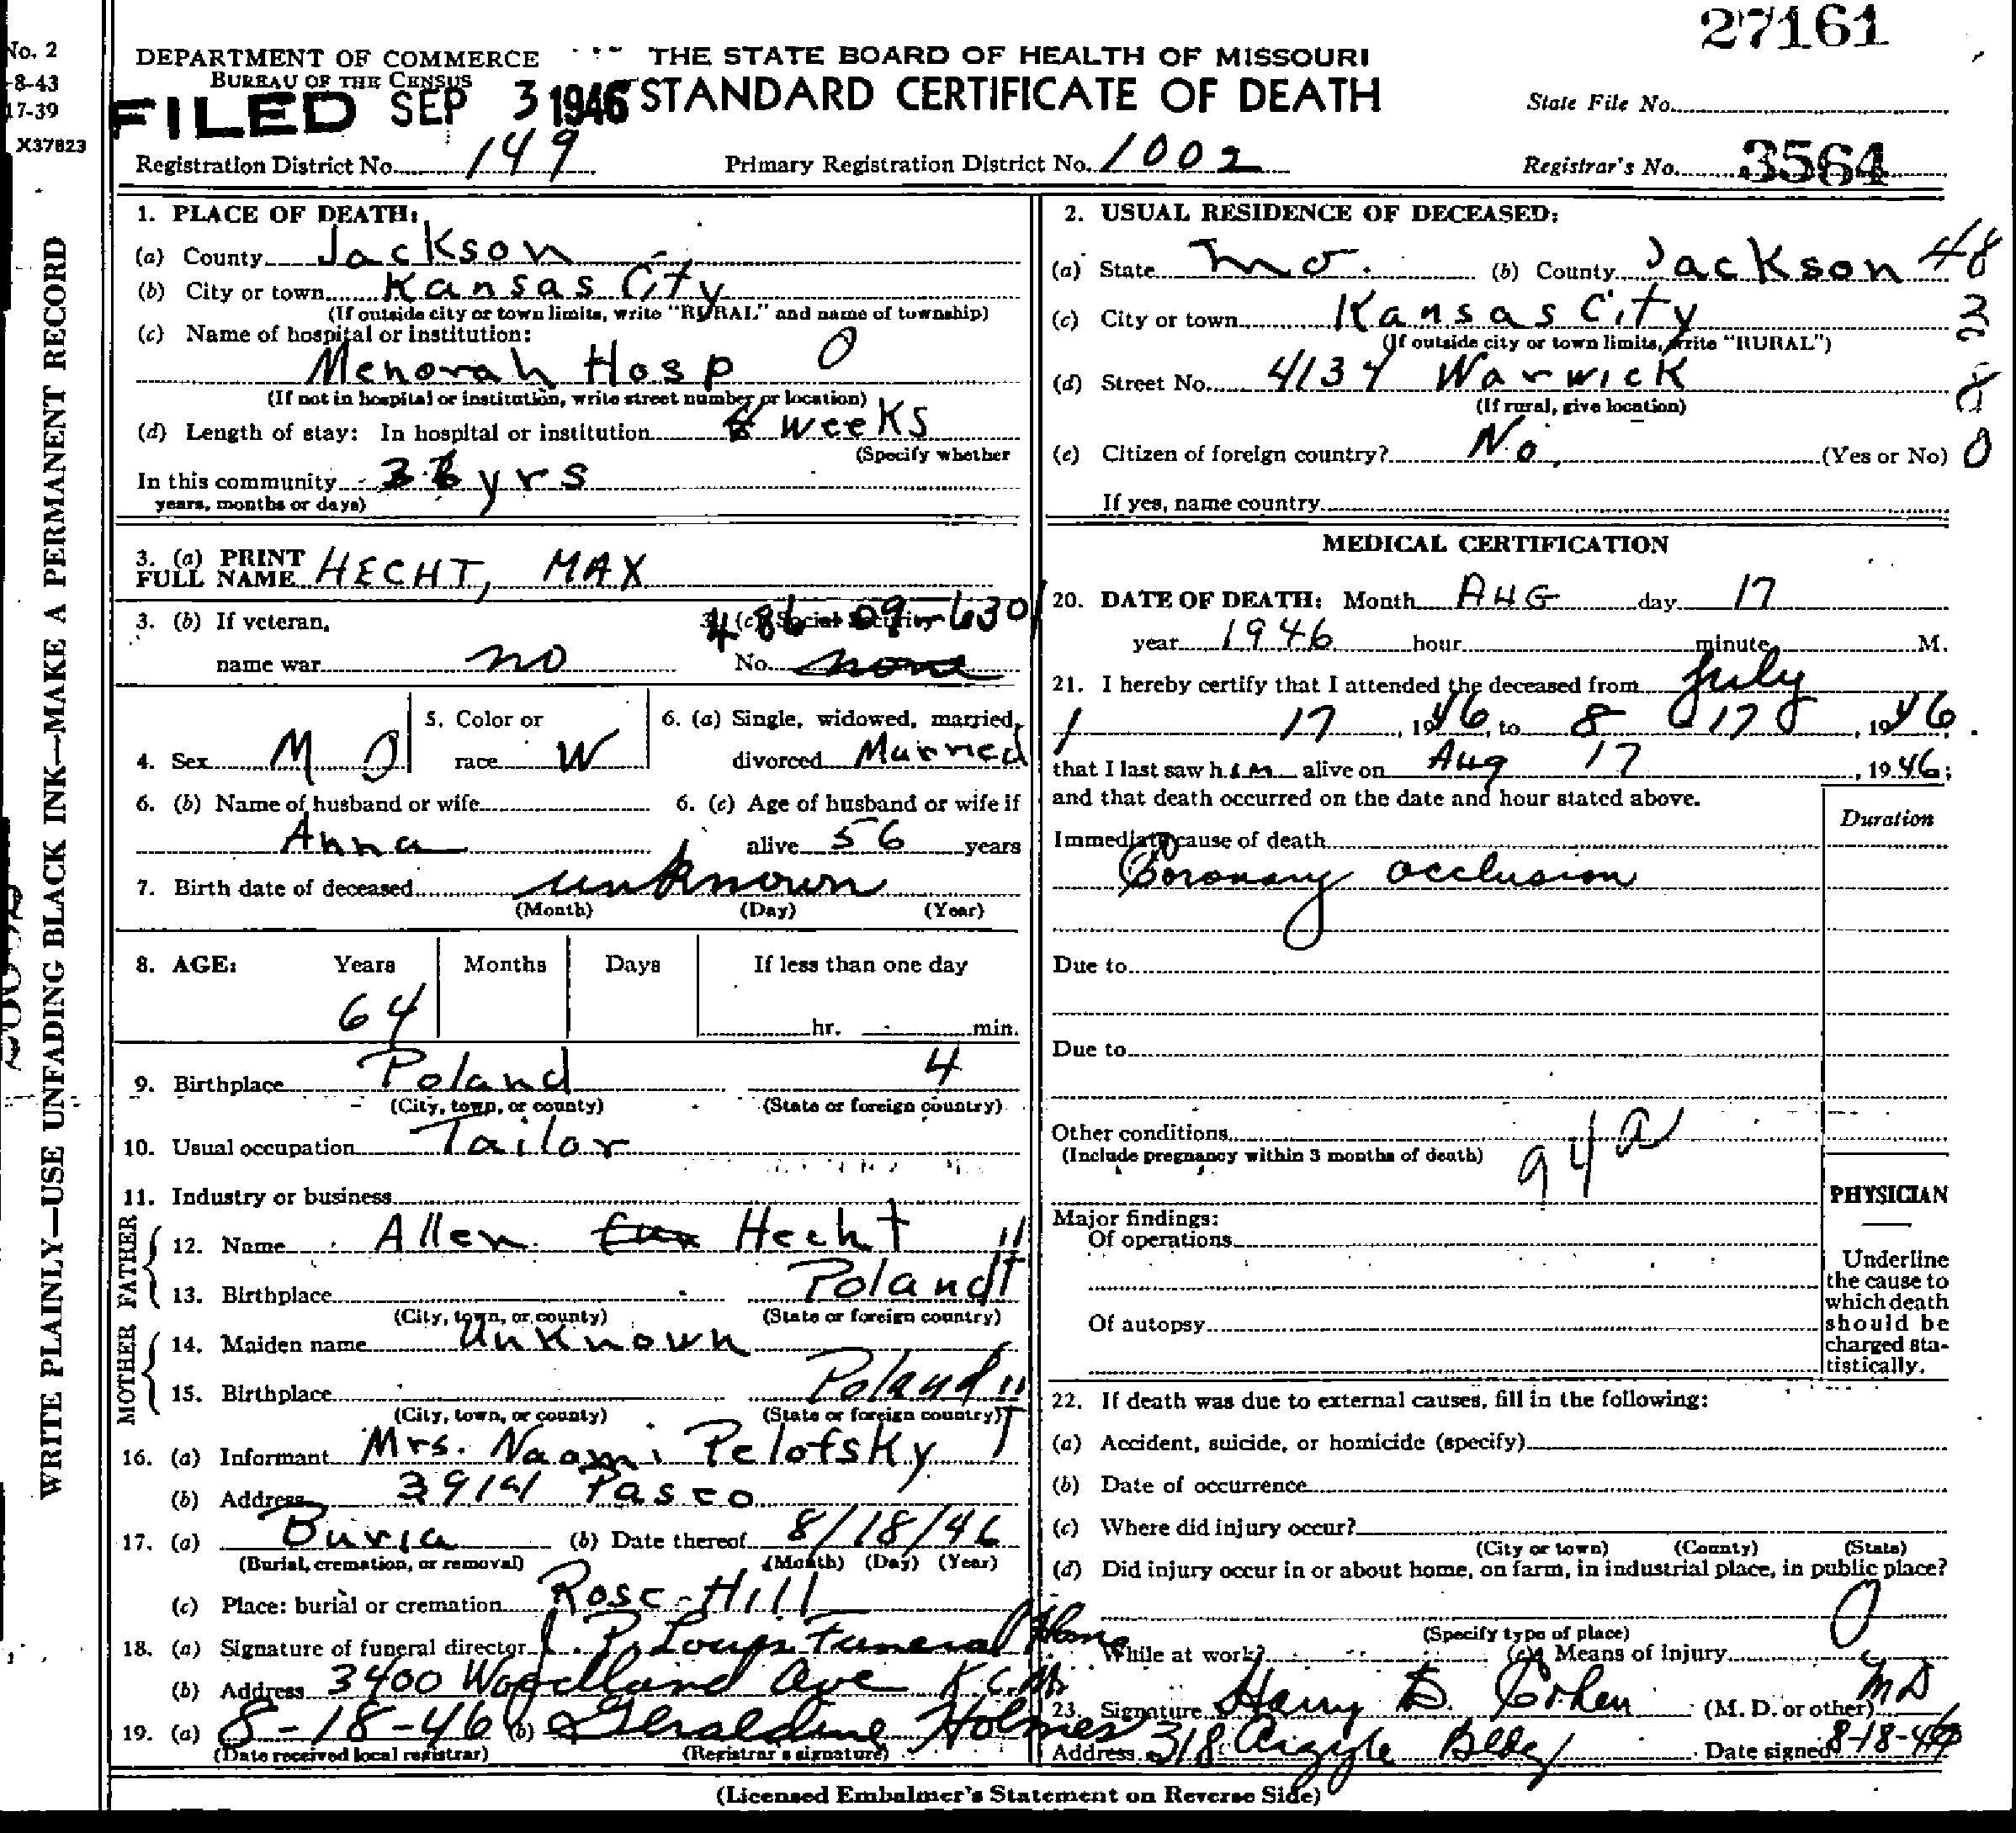 27161
No. 2
-8-43
17-39
X37823
DEPARTMENT OF COMMERCE
BUREAU OF THE CENSUS
THE STATE BOARD OF HEALTH OF MISSOURI
FILED SEP 3 1946 STANDARD CERTIFICATE OF DEATH
State File No.
Registration District No. 149 Primary Registration District No. 1002 Registrar's No. 3564
WRITE PLAINLY—USE UNFADING BLACK INK—MAKE A PERMANENT RECORD
1. PLACE OF DEATH:
(a) County Jackson
(b) City or town Kansas City
(If outside city or town limits, write "RURAL" and name of township)
(c) Name of hospital or institution:
Menorah Hosp 0
(If not in hospital or institution, write street number or location)
(d) Length of stay: In hospital or institution weeks
(Specify whether
In this community yrs
years, months or days)
3. (a) PRINT
FULL NAME HECHT, MAX
3. (b) If veteran,
name war no
3. (c) Social Security
486-09-6301
No. none
4. Sex M
5. Color or
race W
6. (a) Single, widowed, married,
divorced Married
6. (b) Name of husband or wife
Anna
6. (c) Age of husband or wife if
alive 56 years
7. Birth date of deceased unknown
(Month) (Day) (Year)
8. AGE: Years Months Days If less than one day
64
hr. min.
9. Birthplace Poland 4
(City, town, or county) (State or foreign country)
10. Usual occupation Tailor
11. Industry or business
FATHER
12. Name Allen Hecht
13. Birthplace Poland
(City, town, or county) (State or foreign country)
MOTHER
14. Maiden name Unknown
15. Birthplace Poland
(City, town, or county) (State or foreign country)
16. (a) Informant Mrs. Naomi Pelofsky
(b) Address 3914 Paseo
17. (a) Buria (b) Date thereof 8/18/46
(Burial, cremation, or removal) (Month) (Day) (Year)
(c) Place: burial or cremation Rose Hill
18. (a) Signature of funeral director J. P. Louis Funeral Home
(b) Address 3400 Woodland Ave K.C.Mo
19. (a) 8-18-46 (b) Geraldine Holmes
(Date received local registrar) (Registrar's signature)
2. USUAL RESIDENCE OF DECEASED:
(a) State Mo. (b) County Jackson 48
(c) City or town Kansas City 3
(If outside city or town limits, write "RURAL")
(d) Street No. 4134 Warwick 8
(If rural, give location)
(e) Citizen of foreign country? No (Yes or No) 0
If yes, name country
MEDICAL CERTIFICATION
20. DATE OF DEATH: Month AUG day 17
year 1946 hour minute M.
21. I hereby certify that I attended the deceased from July
17, 1946, to 8 17, 1946
that I last saw him alive on Aug 17, 1946;
and that death occurred on the date and hour stated above.
Duration
Immediate cause of death
Coronary occlusion
Due to
Due to
Other conditions
(Include pregnancy within 3 months of death)
94a
PHYSICIAN
Major findings:
Of operations
Of autopsy
Underline
the cause to
which death
should be
charged sta-
tistically.
22. If death was due to external causes, fill in the following:
(a) Accident, suicide, or homicide (specify)
(b) Date of occurrence
(c) Where did injury occur?
(City or town) (County) (State)
(d) Did injury occur in or about home, on farm, in industrial place, in public place?
0
(Specify type of place)
While at work? (e) Means of injury
23. Signature Harry B. Cohen (M. D. or other) MD
Address 318 Argyle Bldg Date signed 8-18-46
(Licensed Embalmer's Statement on Reverse Side)